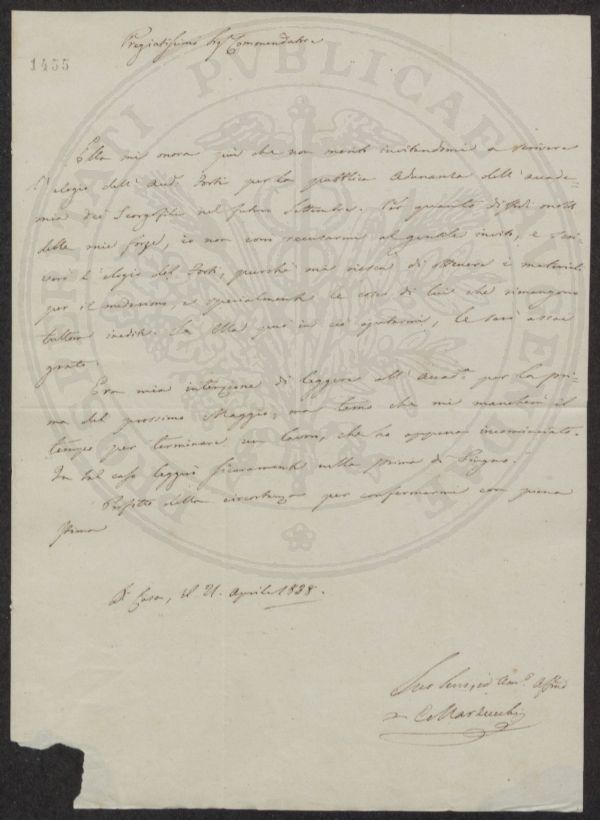 Pregiatissimo Sig. Commendatore
1455
PROSPERITATI PVBLICAE AVGENDAE
Ella mi onora più che non meriti invitandomi a scrivere
l'elogio dell'Avv. Forti per la pubblica Adunanza dell'Accade-
mia dei Georgofili nel futuro Settembre. Per quanto diffidi molto
delle mie forze, io non oso ricusarmi al gentile invito, e scri-
verò l'elogio del Forti, purché mi riesca di ottenere i materiali
per il medesimo, e specialmente le cose di lui che rimangono
tuttora inedite. Se Ella può in ciò ajutarmi, le sarò assai
grato.
Era mia intenzione di leggere all'Accad.a per la pri-
ma del prossimo Maggio, ma temo che mi mancherà il
tempo per terminare un lavoro, che ho appena incominciato.
In tal caso leggerò sicuramente nella prima di Giugno.
Profitto della circostanza per confermarmi con piena
stima
Di Casa, il 21. Aprile 1838.
Suo Servo, ed Am.o Aff.mo
C. Martucchi